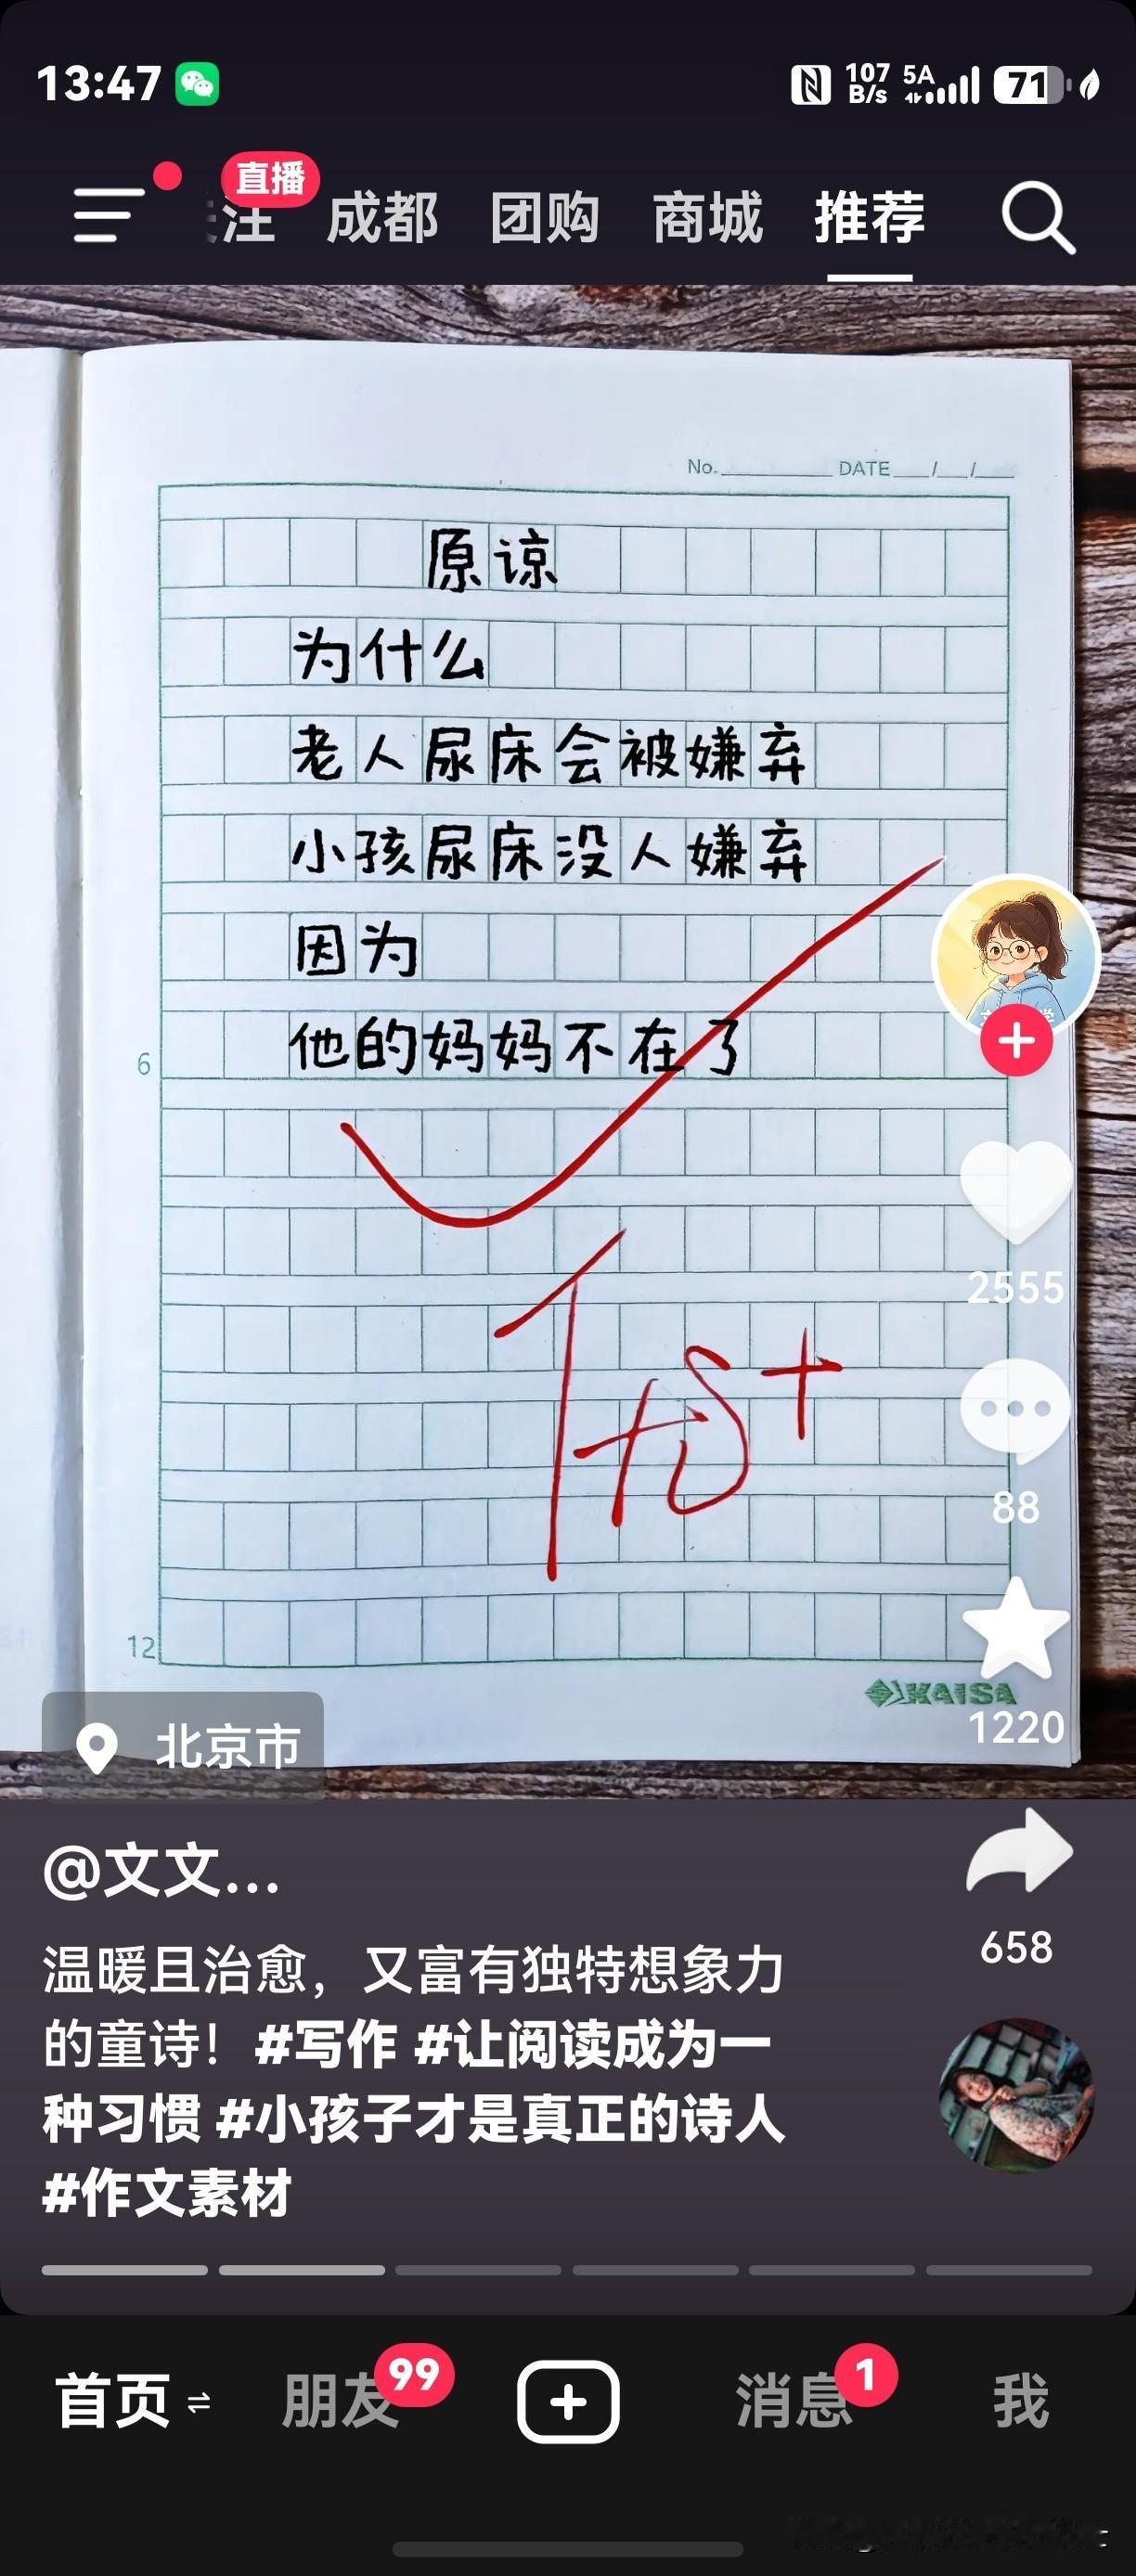 13:47
107 B/s 5A 71
直播
注 成都 团购 商城 推荐
No. DATE / /
原谅
为什么
老人尿床会被嫌弃
小孩尿床没人嫌弃
因为
他的妈妈不在了
6
2555
88
12
KAISA
1220
北京市
@文文...
658
温暖且治愈，又富有独特想象力
的童诗！#写作 #让阅读成为一
种习惯 #小孩子才是真正的诗人
#作文素材
首页 朋友 99 消息 1 我